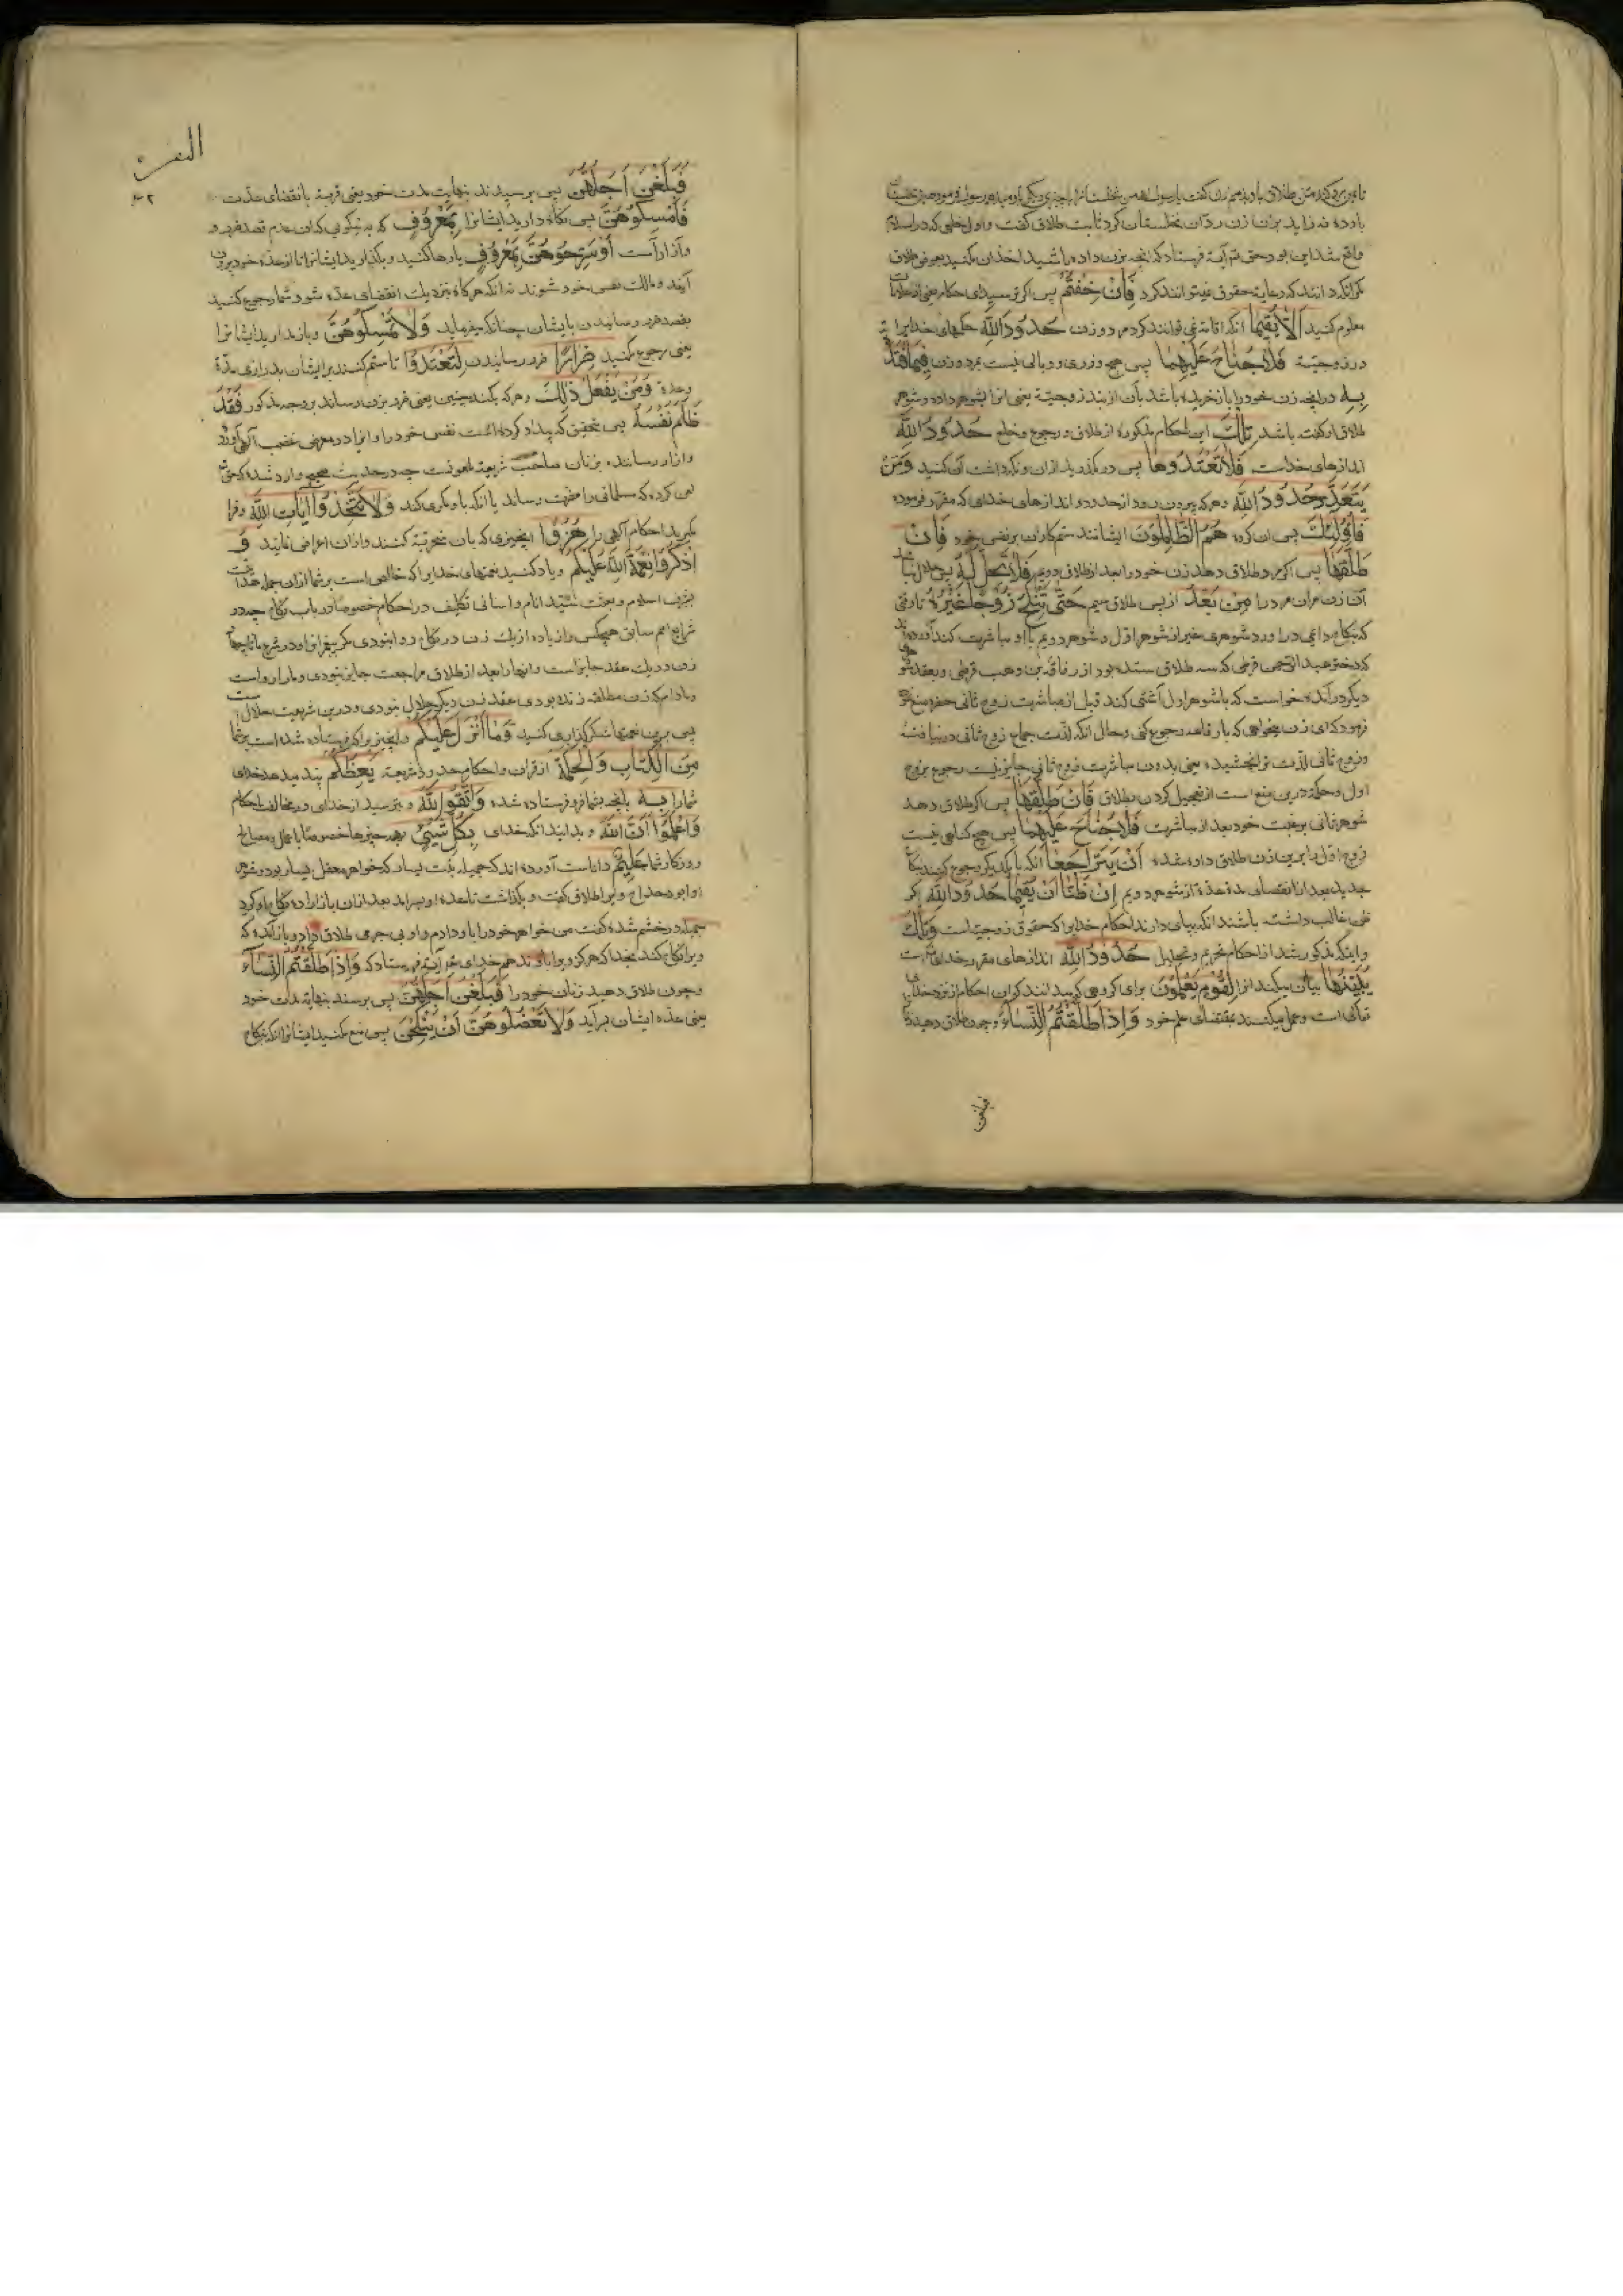 باوده نه زاید بزنان زن ردان نخلستان کرد ثابت طلاق گفت و اول خلعی که در اسلام
واقع شد این بود حق تم آیة فرستاد که انچه بزن داده باشید اخذ آن مکنید بعوض طلاق
مکر انکه دانند که رعایة حقوق نمیتوانند کرد فَإِنْ خِفْتُمْ پس اکر ترسید ای حکام یعنی از علامات
معلوم کنید أَلَّا يُقِيمَا انکه اقامة نمی توانند کرد مرد و زن حُدُودَ اللّٰهِ حکمهای خدایرا
در زوجیّة فَلَا جُنَاحَ عَلَيْهِمَا پس هیچ وزری و وبالی نیست بر مرد و زن فِيمَا افْتَدَتْ
بِهِ در انچه زن خود را باز خریده باشد بآن از بند زوجیّة یعنی انرا بشوهر داده و شوهر
طلاق او گفته باشد تِلْكَ این احکام مذکوره از طلاق و رجوع و خلع حُدُودُ اللّٰهِ
اندازهای خداست فَلَا تَعْتَدُوهَا پس در مکذرید از ان و نکه داشت آن کنید وَمَنْ
يَتَعَدَّ حُدُودَ اللّٰهِ و هر که بیرون رود از حدود و اندازهای خدای که مقرر فرموده
فَأُولٰئِكَ پس ان کروه هُمُ الظَّالِمُونَ ایشانند ستم کاران بر نفس خود فَإِنْ
طَلَّقَهَا پس اکر مرد طلاق دهد زن خود را بعد از طلاق دویم فَلَا تَحِلُّ لَهُ پس حلال نباشد
آن زن مران مرد را مِنْ بَعْدُ از پس طلاق سیم حَتَّى تَنْكِحَ زَوْجًا غَيْرَهُ تا وقتی
که بنکاح دائمی در اورد شوهری غیر از شوهر اول و شوهر دویم با او مباشرت کند آورده اند
که دختر عبد الرّحمن قرظی که سه طلاق ستده بود از رفاعه بن وهب قرظی و بعقد شوهر
دیکر در آمده خواست که با شوهر اول آشتی کند قبل از مباشرت زوج ثانی حضرت منع
فرمود که ای زن میخواهی که با رفاعه رجوع کنی و حال انکه لذت جماع زوج ثانی در نیافته
و زوج ثانی لذت ترا نچشیده یعنی بدون مباشرت زوج ثانی جایز نیست رجوع بزوج
اول و حکمة درین منع است از تعجیل کردن بطلاق فَإِنْ طَلَّقَهَا پس اکر طلاق دهد
شوهر ثانی برغبت خود بعد از مباشرت فَلَا جُنَاحَ عَلَيْهِمَا پس هیچ کناهی نیست
زوج اول را برین زن طلاق داده شده أَنْ يَتَرَاجَعَا انکه با یکدیکر رجوع کنند بنکاح
جدید بعد از انقضای مدة عدّة از شوهر دویم إِنْ ظَنَّا أَنْ يُقِيمَا حُدُودَ اللّٰهِ اکر
ظن غالب داشته باشند انکه بپای دارند احکام خدایرا که حقوق زوجیت است وَتِلْكَ
و اینکه مذکور شد از احکام تحریم و تحلیل حُدُودُ اللّٰهِ اندازهای مقرره خدای است
يُبَيِّنُهَا بیان میکند انرا لِقَوْمٍ يَعْلَمُونَ برای کروهی که میدانند که این احکام از نزد خدای
تعالی است و عمل میکنند بمقتضای علم خود وَإِذَا طَلَّقْتُمُ النِّسَاءَ و چون طلاق دهید زنانرا
البقرة
فَبَلَغْنَ أَجَلَهُنَّ پس برسیدند بنهایت مدت خود یعنی قریبة بانقضای عدّت
فَأَمْسِكُوهُنَّ پس نکاه دارید ایشانرا بِمَعْرُوفٍ که به نیکویی که ان عدم قصد ضرر و
و آزار است أَوْ سَرِّحُوهُنَّ بِمَعْرُوفٍ یا رها کنید و بکذارید ایشانرا تا از عدّه خود بیرون
آیند و مالک نفس خود شوند نه انکه هرکاه نزدیک انقضای عدّه شود شما رجوع کنید
بقصد ضرر رسانیدن بایشان چنانکه میفرماید وَلَا تُمْسِكُوهُنَّ و باز مدارید ایشانرا
یعنی رجوع مکنید ضِرَارًا ضرر رسانیدن لِتَعْتَدُوا تا ستم کنید بر ایشان بدرازی مدّة
و عدّه وَمَنْ يَفْعَلْ ذٰلِكَ و هر که بکند چنین یعنی ضرر بزن رساند بر وجه مذکور فَقَدْ
ظَلَمَ نَفْسَهُ پس بتحقیق که بیداد کرده است نفس خود را و انرا در معرض غضب آلهی آورد
و ازار رساننده بزنان صاحب شریعة ملعونست چه در حدیث صحیح وارد شده که حق
لعن کرده که مسلمانی را مضرت رساند یا انکه با او مکری کند وَلَا تَتَّخِذُوا آيَاتِ اللّٰهِ و فرا
مکیرید احکام آلهی را هُزُوًا انچیزی که بان سخریّة کنند و از ان اعراض نمایند وَ
اذْكُرُوا نِعْمَةَ اللّٰهِ عَلَيْكُمْ و یاد کنید نعمتهای خدایرا که خالص است بر شما از ان جمله هدایت
بشرف اسلام و بعثت سیّد انام و اسانی تکلیف در احکام خصوصا در باب نکاح چه در
شرایع امم سابق هیچکس را زیاده از یک زن در نکاح روا نبودی مکر پیغمبرانرا و در شرع ما تا چهار
زن در یک عقد جایز است و انها را بعد از طلاق مراجعت جایز نبودی و ما را رواست
و مادام که زن مطلقه زنده بودی عقد زن دیکر حلال نبودی و درین شریعت حلال است
پس برین نعمتها شکر کذاری کنید وَمَا أَنْزَلَ عَلَيْكُمْ و انچیز برا که فرستاده شده است بر شما
مِنَ الْكِتَابِ وَالْحِكْمَةِ از قران و احکام حدود شریعة يَعِظُكُمْ پند میدهد خدای
شما را بِهِ بانچه بشما فرو فرستاده شده وَاتَّقُوا اللّٰهَ و بترسید از خدای در مخالف احکام
وَاعْلَمُوا أَنَّ اللّٰهَ و بدانید انکه خدای بِكُلِّ شَيْءٍ بهمه چیزها خصوصا باعمال و مصالح
روزکار شما عَلِيمٌ داناست آورده اند که جمیله بنت یسار که خواهر معقل یسار بود و شوهر
او ابو دحداح ویرا طلاق گفت و بکذاشت تا عده او بسر امد بعد از ان باز اراده نکاح او کرد
جمیله در خشم شده گفت من خواهر خود را باو دادم و او بی جرمی طلاق داد و باز آمده که
ویرا نکاح کند بخدا که هرکز ویرا باو ندهم خدای تم آیة فرستاد که وَإِذَا طَلَّقْتُمُ النِّسَاءَ
و چون طلاق دهید زنان خود را فَبَلَغْنَ أَجَلَهُنَّ پس برسند بنهایة مدت خود
یعنی عدّه ایشان برآید وَلَا تَعْضُلُوهُنَّ أَنْ يَنْكِحْنَ پس منع مکنید ایشانرا انکه بنکاح